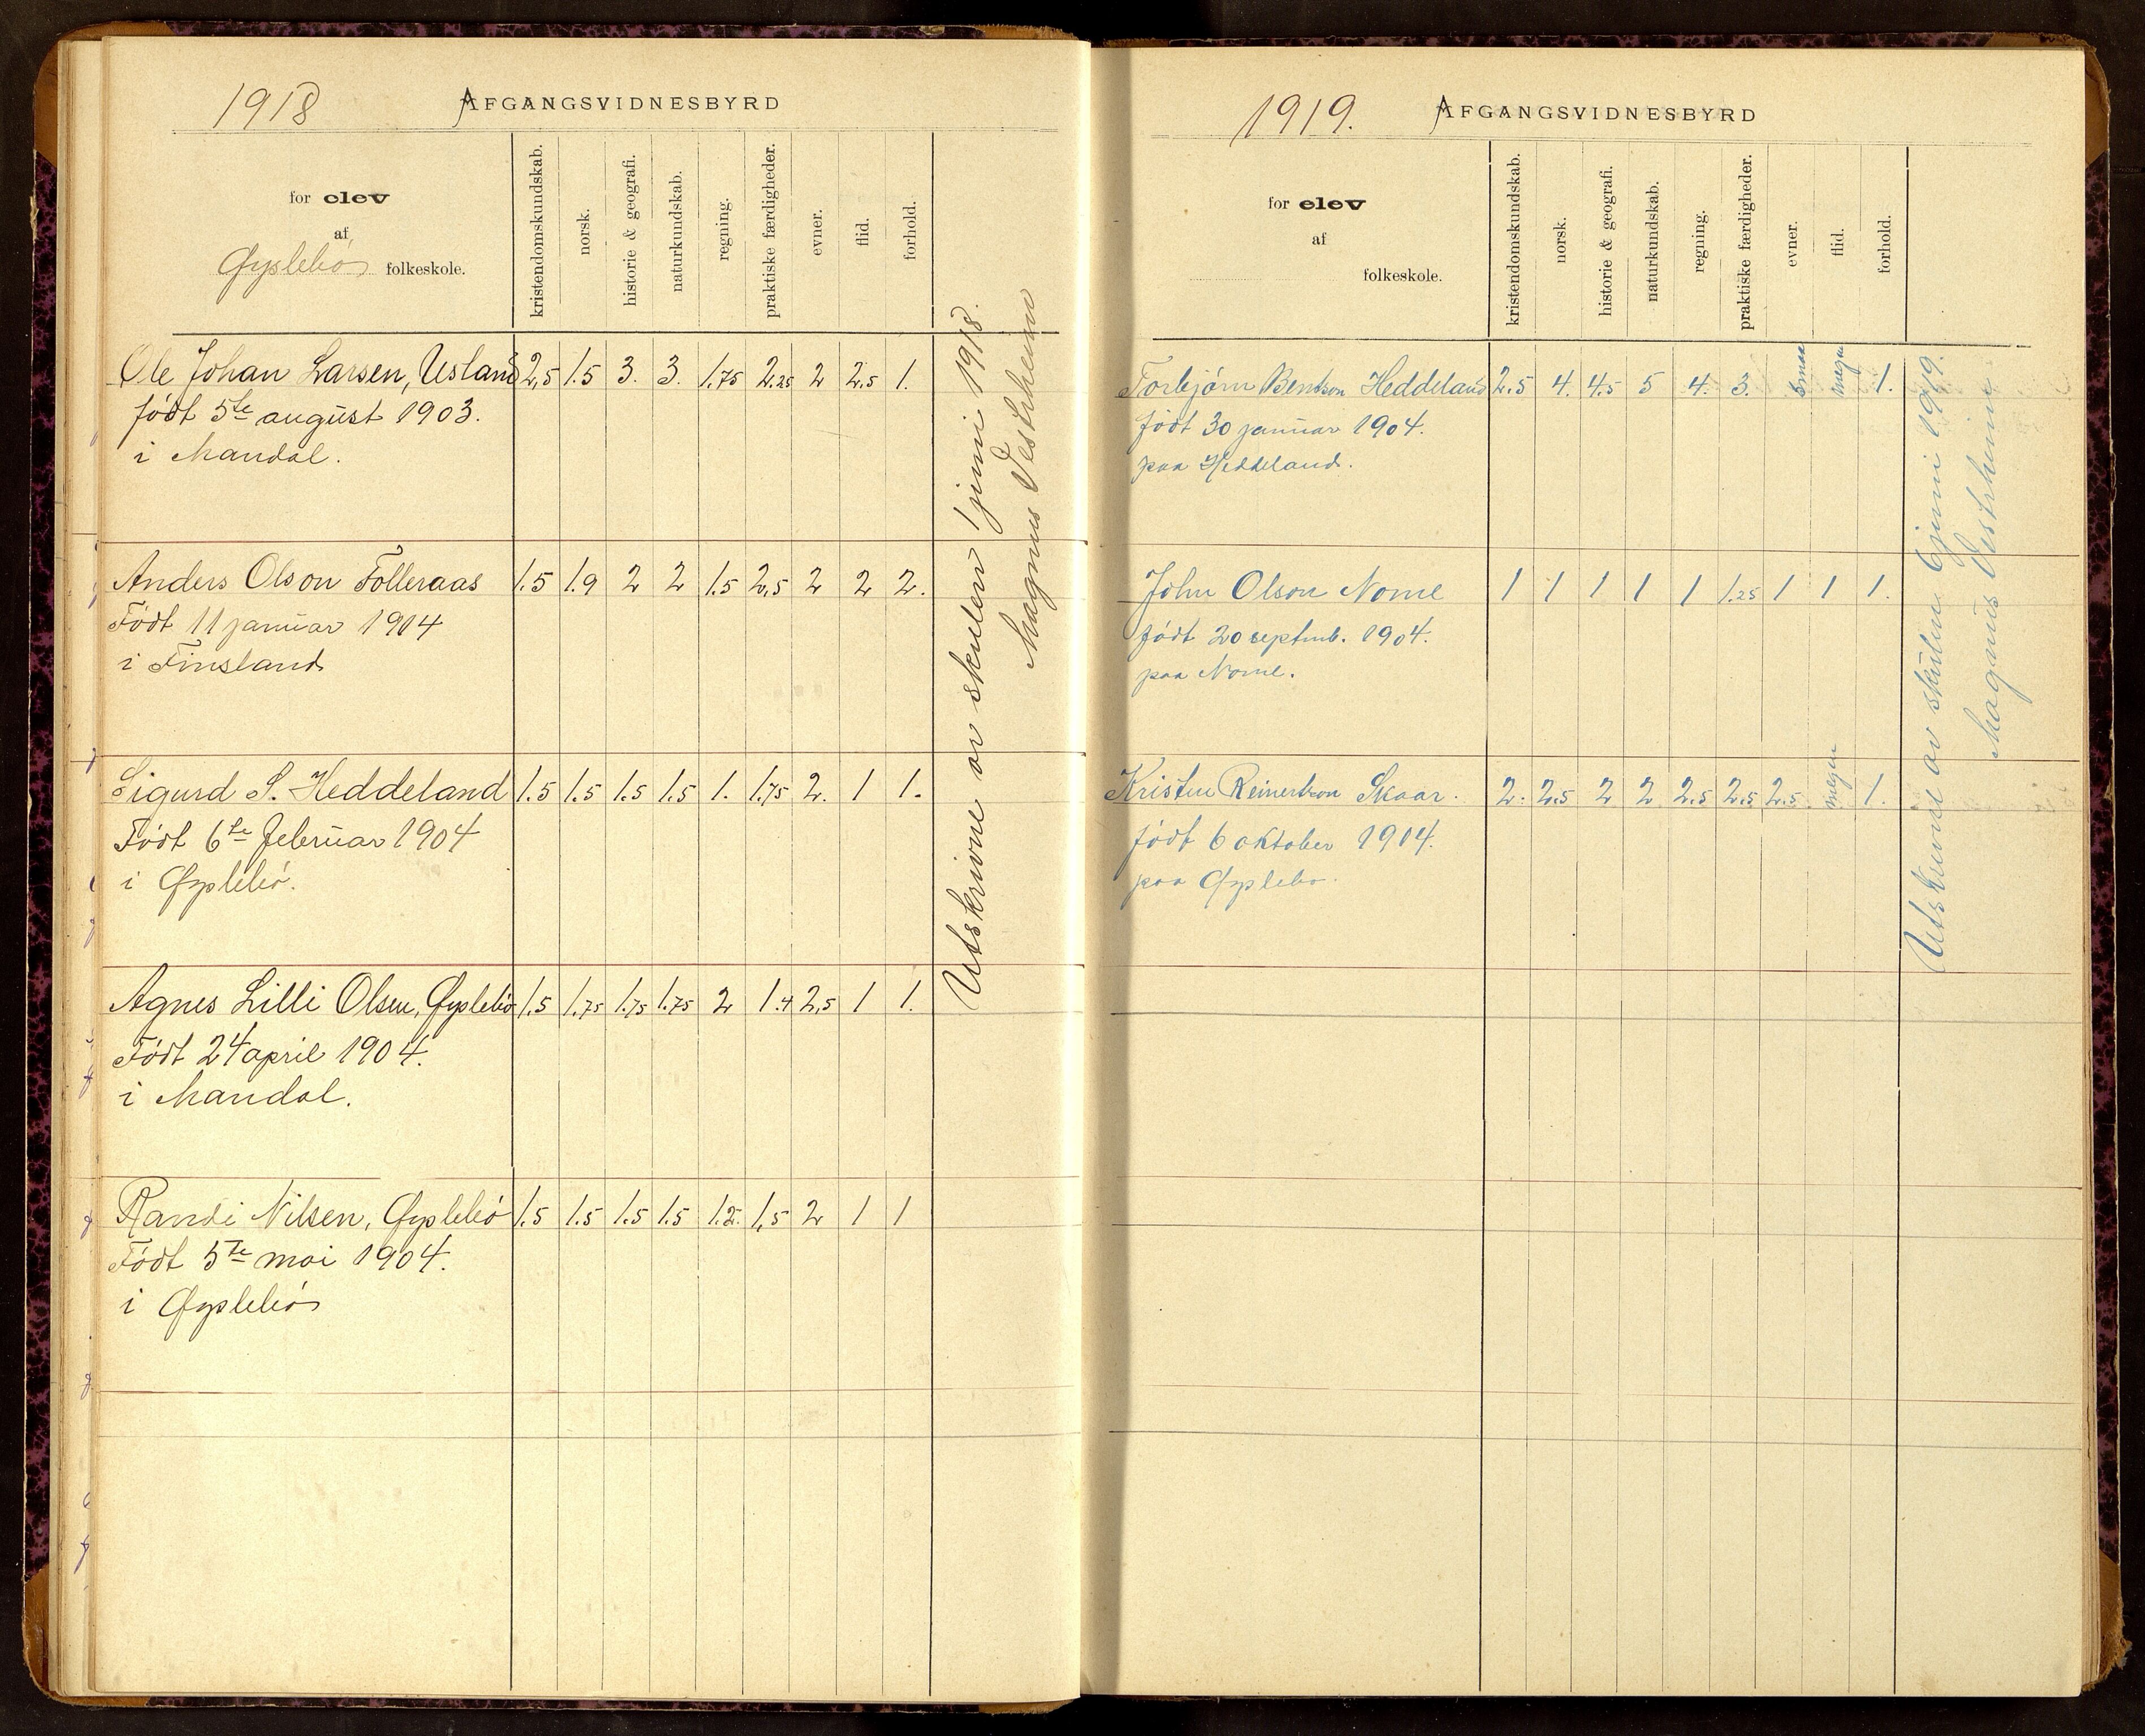 1918 AFGANGSVIDNESBYRD
for elev
af
Øyslebö folkeskole.
kristendomskundskab. norsk. historie & geografi. naturkundskab. regning. praktiske færdigheder. evner. flid. forhold.
Ole Johan Larsen, Usland 2,5 1.5 3. 3. 1.75 2.25 2 2.5 1.
födt 5te august 1903.
i Mandal.
Anders Olson Tolleraas 1.5 1.9 2 2 1.5 2,5 2 2 2.
Födt 11 januar 1904
i Finsland
Sigurd S. Heddeland 1.5 1.5 1.5 1.5 1. 1.75 2. 1 1.
Födt 6te februar 1904
i Øyslebö.
Agnes Lilli Olsen, Øyslebö 1.5 1.75 1.75 1.75 2 1.4 2,5 1 1.
Födt 24 april 1904.
i Mandal.
Randi Nilsen, Øyslebö 1.5 1.5 1.5 1.5 1.2. 1,5 2 1 1
Födt 5te mai 1904.
i Øyslebö
Utskrivne av skulen 1 juni 1918.
Magnus Vestrheim
1919. AFGANGSVIDNESBYRD
for elev
af
folkeskole.
kristendomskundskab. norsk. historie & geografi. naturkundskab. regning. praktiske færdigheder. evner. flid. forhold.
Torbjörn Bentson Heddeland 2.5 4. 4.5 5 4. 3. smaa megen 1.
födt 30 januar 1904.
paa Heddeland.
John Olson Nome 1 1 1 1 1 1.25 1 1 1.
födt 20 septmb. 1904.
paa Nome.
Kristen Reinertson Skaar. 2. 2.5 2 2 2.5 2.5 2.5 megen 1.
födt 6 oktober 1904.
paa Øyslebö.
Utskrivne av skulen 6 juni 1919.
Magnus Vestrheim